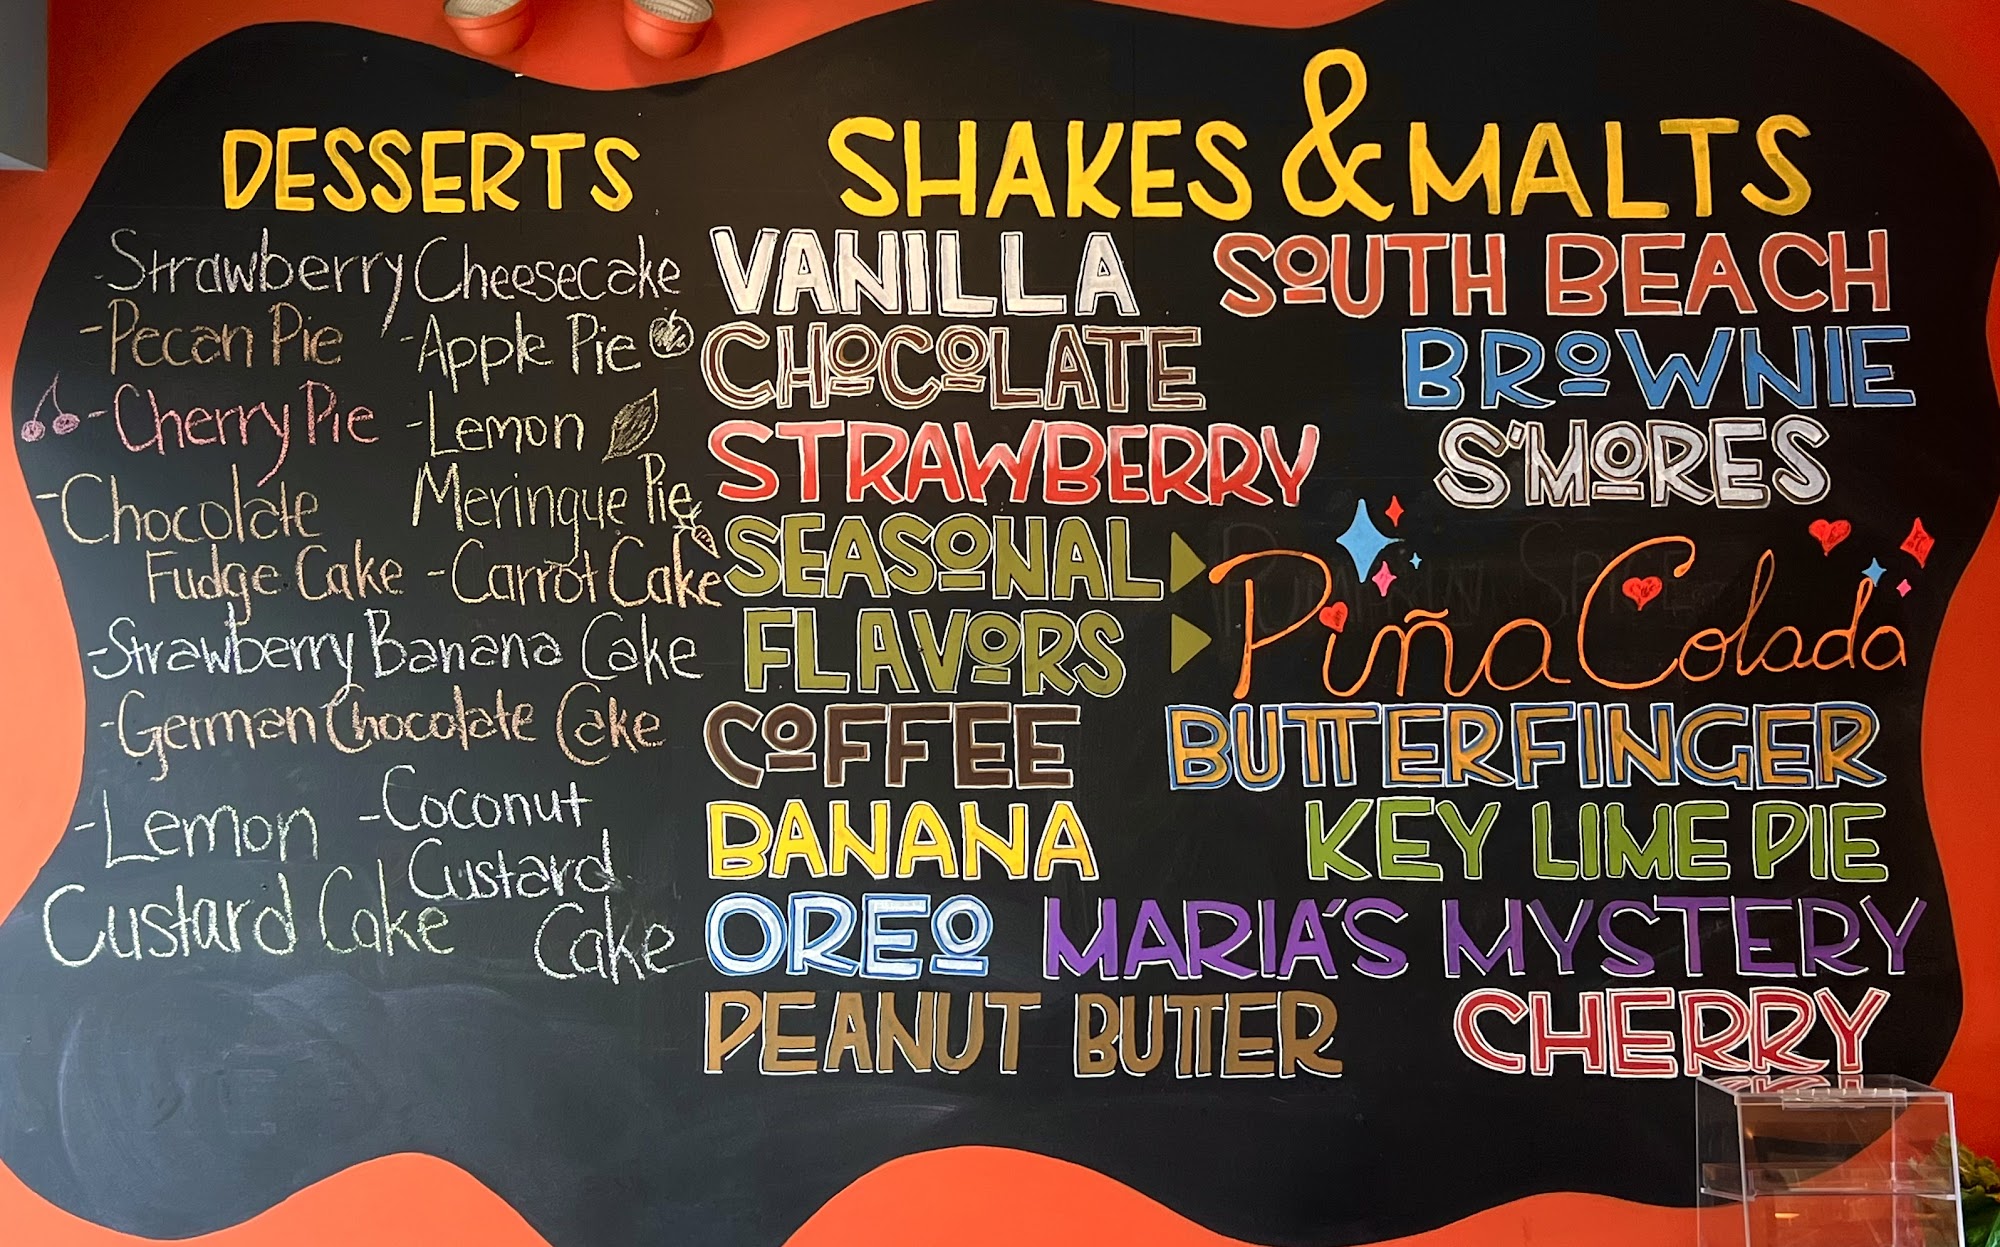 DESSERTS
- Strawberry Cheesecake
- Pecan Pie
- Apple Pie
- Cherry Pie
- Lemon
Meringue Pie
- Chocolate
Fudge Cake
- Carrot Cake
- Strawberry Banana Cake
- German Chocolate Cake
- Lemon
Custard Cake
- Coconut
Custard
Cake
SHAKES & MALTS
VANILLA
CHOCOLATE
STRAWBERRY
SEASONAL
FLAVORS
COFFEE
BANANA
OREO
PEANUT BUTTER
SOUTH BEACH
BROWNIE
S'MORES
Piña Colada
BUTTERFINGER
KEY LIME PIE
MARIA'S MYSTERY
CHERRY